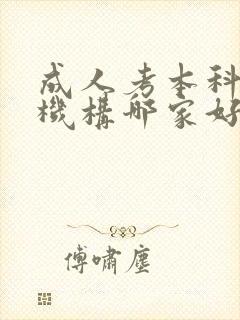 成人考本科
機構哪家好
傅嘯塵